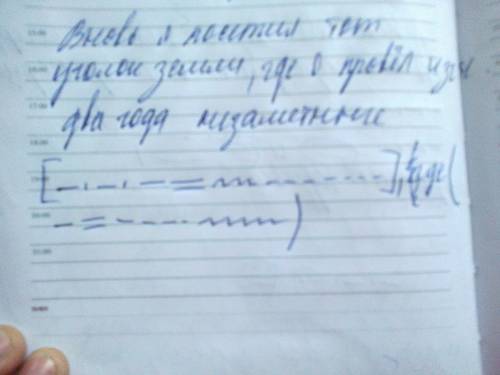 Вновь я посетил тот
уголок земли, где я провёл изгн
два года незаметные
[ ], где (
)